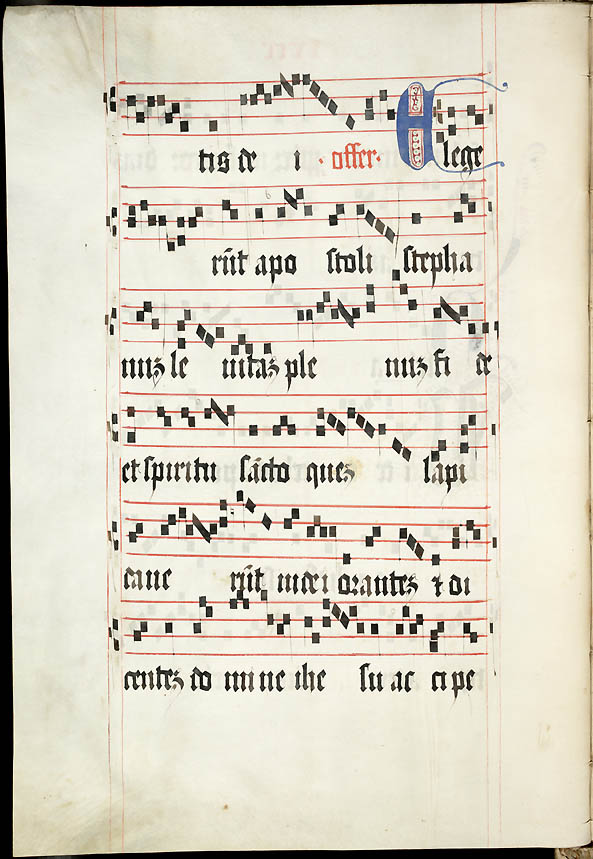 tis de i · offer· Elege
rūt apo stoli stepha
nuz le uitaz ple nuz fi de
et spiritu sācto quez lapi
daue rūt iudei orantez ⁊ di
centez do mi ne ihe su ac ci pe